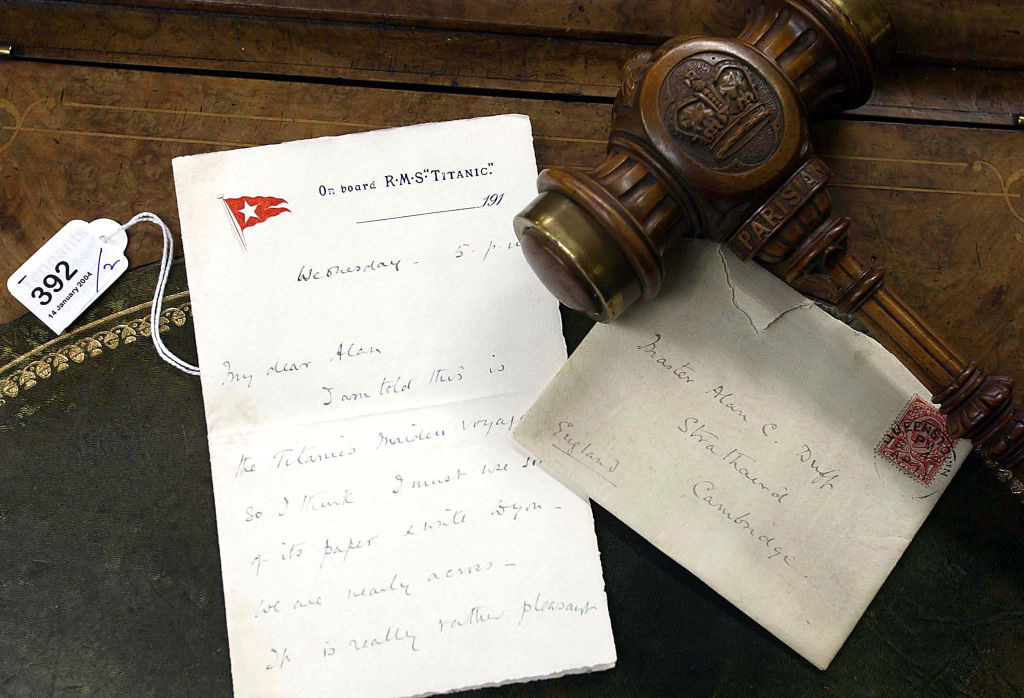 On board R·M·S·"TITANIC".
191
Wednesday - 5. p.
My dear Alan
I am told this is
the Titanic's Maiden voyag
So I think I must use
of its paper & write to you -
We are nearly across -
It is really rather pleasant
392
/2
14 January 2004
PARISIAN
Master Alan C. Duff
Strathaird
Cambridge.
England
QUEENSTOWN